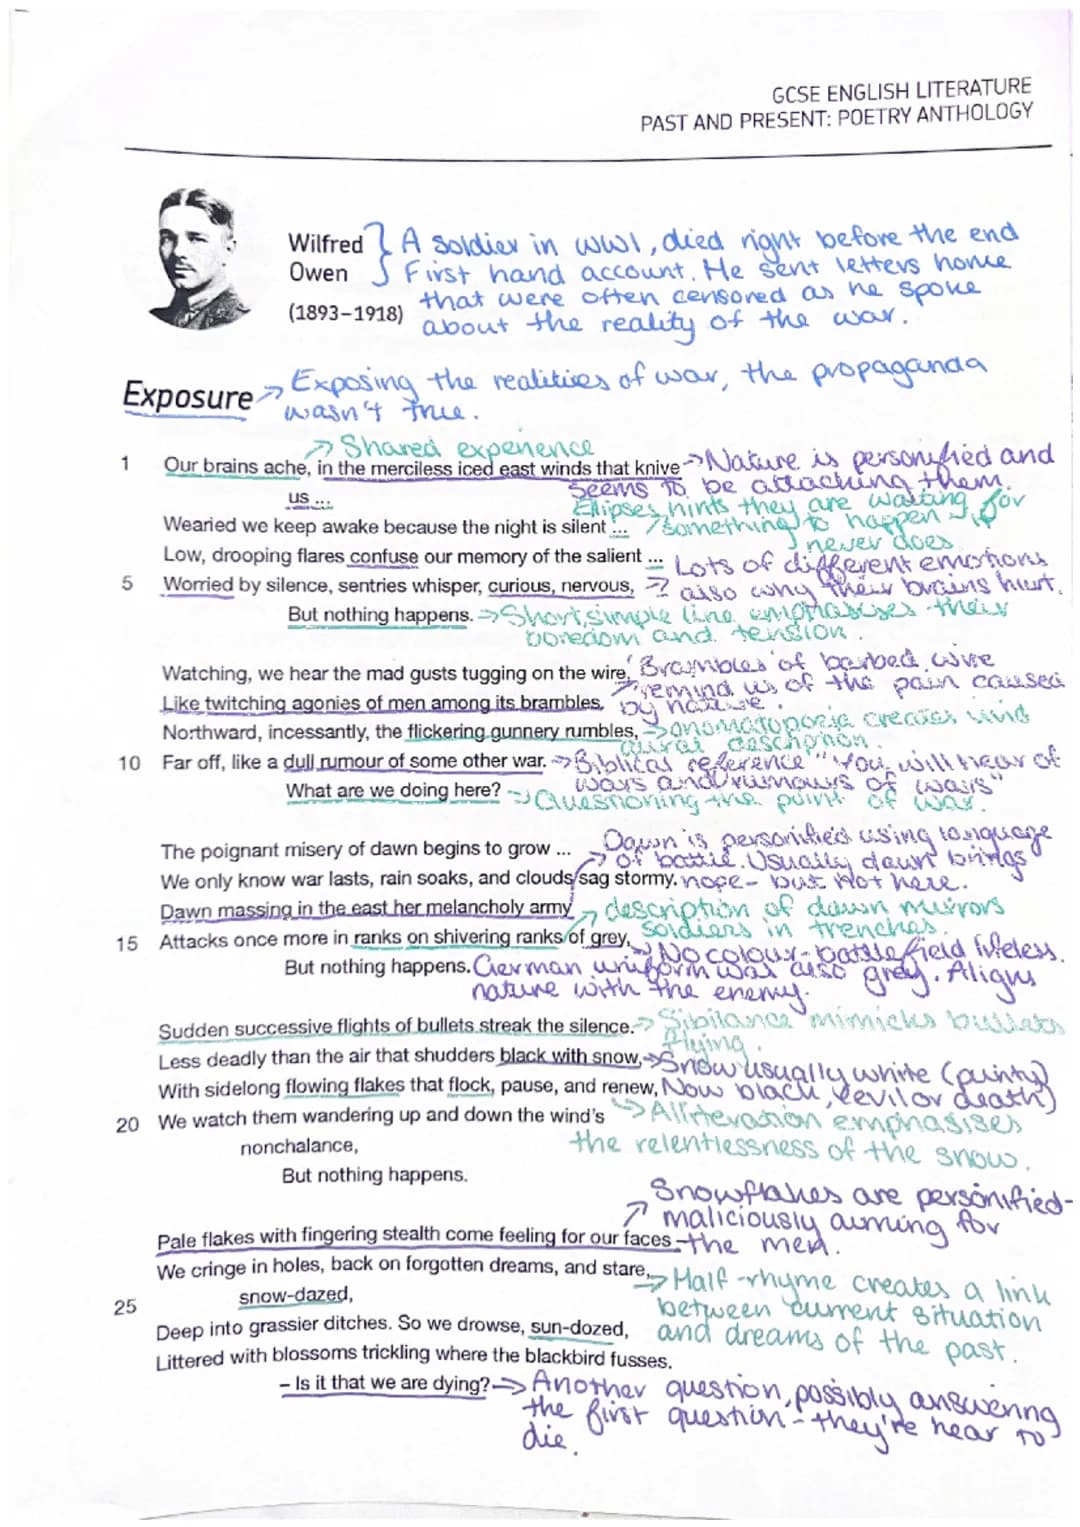 GCSE ENGLISH LITERATURE
PAST AND PRESENT: POETRY ANTHOLOGY
Wilfred } A soldier in WW1, died right before the end
Owen First hand account. He sent letters home
(1893–1918) that were often censored as he spoke
about the reality of the war.
Exposure → Exposing the realities of war, the propaganda
wasn't true.
→ Shared experience
1 Our brains ache, in the merciless iced east winds that knive → Nature is personified and
us ... seems to be attacking them.
Ellipses hints they are waiting for
Wearied we keep awake because the night is silent ... something to happen - it
never does
Low, drooping flares confuse our memory of the salient ... Lots of different emotions
5 Worried by silence, sentries whisper, curious, nervous, → also why their brains hurt.
But nothing happens. → Short, simple line emphasises their
boredom and tension.
Watching, we hear the mad gusts tugging on the wire, 'Brambles' of barbed wire
Like twitching agonies of men among its brambles. → remind us of the pain caused
by nature.
Northward, incessantly, the flickering gunnery rumbles, → onomatopoeia creates vivid
aural description.
10 Far off, like a dull rumour of some other war. → Biblical reference "You will hear of
wars and rumours of wars"
What are we doing here? → Questioning the point of war.
Dawn is personified using language
The poignant misery of dawn begins to grow ... → of battle. Usually dawn brings
We only know war lasts, rain soaks, and clouds sag stormy. hope - but not here.
Dawn massing in the east her melancholy army → description of dawn mirrors
soldiers in trenches.
15 Attacks once more in ranks on shivering ranks of grey, → No colour - battlefield lifeless.
But nothing happens. German uniform was also grey. Aligns
nature with the enemy.
Sudden successive flights of bullets streak the silence. → Sibilance mimicks bullets
flying.
Less deadly than the air that shudders black with snow, → Snow usually white (purity)
With sidelong flowing flakes that flock, pause, and renew, Now black, (evil or death)
20 We watch them wandering up and down the wind's → Alliteration emphasises
nonchalance, the relentlessness of the snow.
But nothing happens.
Snowflakes are personified -
→ maliciously aiming for
Pale flakes with fingering stealth come feeling for our faces - the men.
We cringe in holes, back on forgotten dreams, and stare, → Half-rhyme creates a link
25 snow-dazed, between current situation
Deep into grassier ditches. So we drowse, sun-dozed, and dreams of the past.
Littered with blossoms trickling where the blackbird fusses.
– Is it that we are dying? → Another question, possibly answering
the first question - they're near to
die.